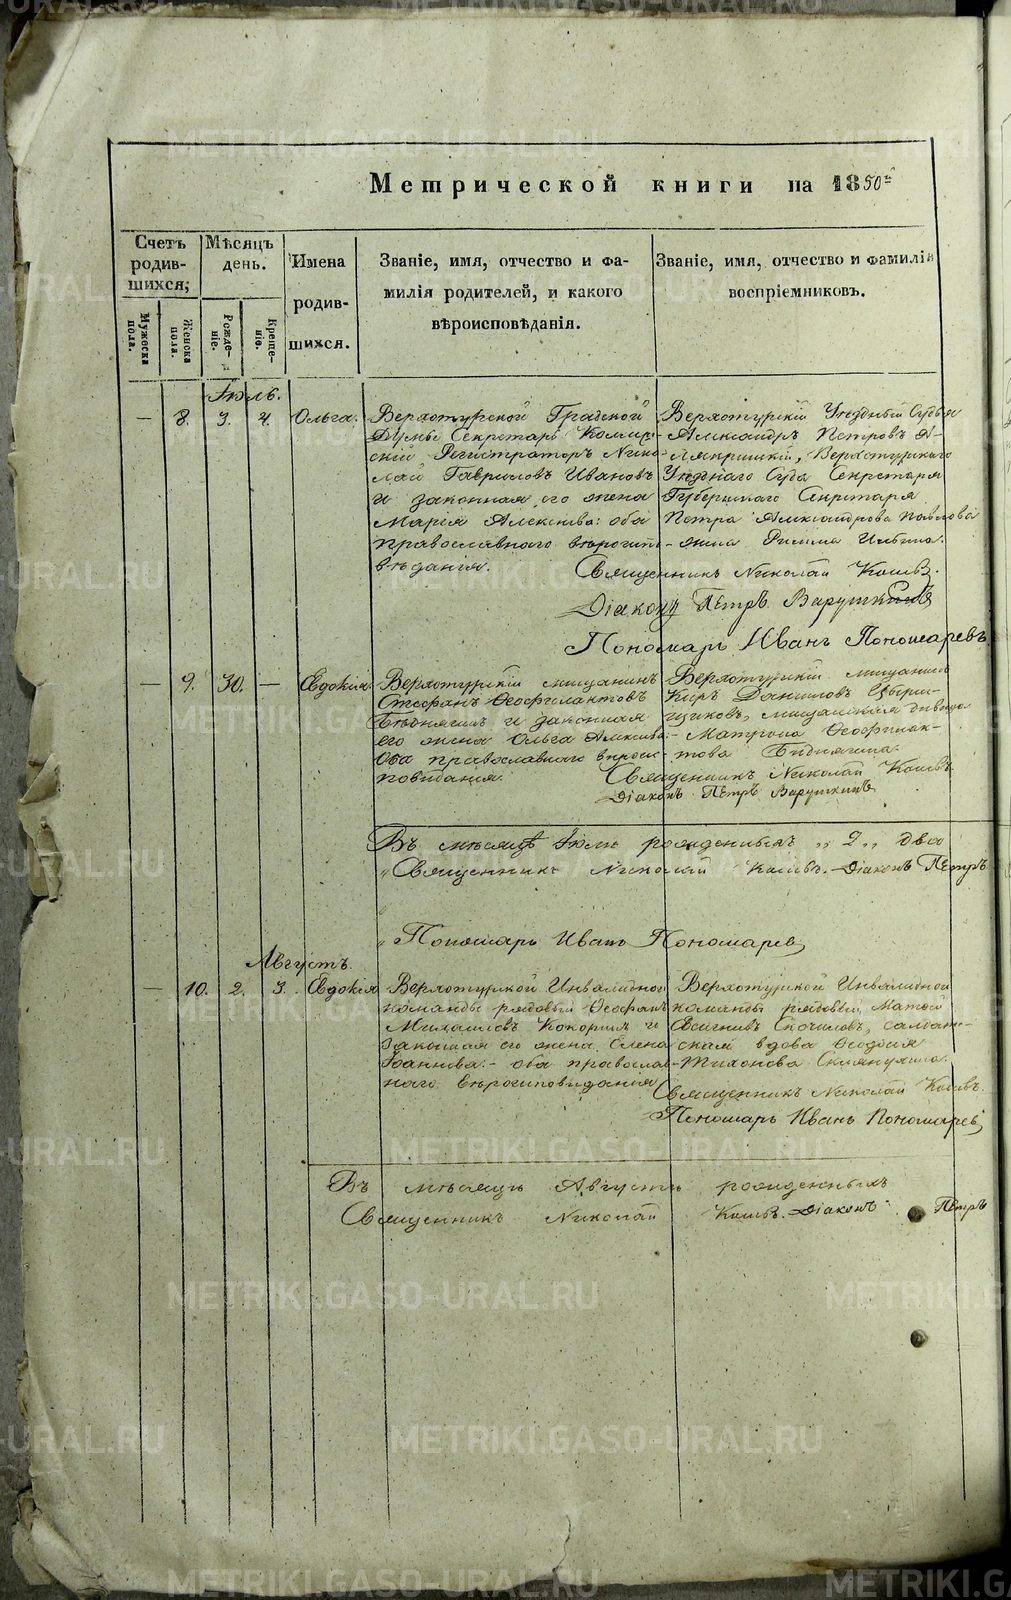 Метрической книги на 1850й
Счетъ родившихся;
Мѣсяцъ день.
Имена родившихся.
Званіе, имя, отчество и фамилія родителей, и какого вѣроисповѣданія.
Званіе, имя, отчество и фамиліи воспріемниковъ.
Мужеска пола.
Женска пола.
Рожденіе.
Крещеніе.
Іюль.
— 8. 3. 4. Ольга.
Верхотурской Градской
Думы Секретарь Коллеж-
скій Регистраторъ Нико-
лай Гавриловъ Ивановъ
и законная его жена
Марія Алексѣева: оба
православнаго вѣроиспо-
вѣданія.
Верхотурскій Уѣздный Судья
Александръ Петровъ
Верхотурскаго
Уѣзднаго Суда Секретаря
Губернскаго Секретаря
Петра Александрова Павлова
жена Римма Ильина.
Священникъ Николай
Діаконъ Петръ Варушкинъ
Пономарь Иванъ Пономаревъ
— 9. 30. — Евдокія.
Верхотурскій мѣщанинъ
Стефанъ Ѳеофилактовъ
и законная
его жена Ольга Алексѣева.
Оба православнаго вѣроис-
повѣданія.
Верхотурскій мѣщанинъ
Киръ Даниловъ
щиковъ, мѣщанская дѣвица
Матрона Ѳеофилак-
това
Священникъ Николай
Діаконъ Петръ Варушкинъ
Въ мѣсяцѣ Іюлѣ рожденныхъ „ 2 „ два
Священникъ Николай Діаконъ Петръ
Пономарь Иванъ Пономаревъ
Августъ.
— 10. 2. 3. Евдокія
Верхотурской Инвалидной
команды рядовый Ѳеофанъ
Михайловъ Кокоринъ и
законная его жена Елена
Іоаннова. оба православ-
наго вѣроисповѣданія
Верхотурской Инвалидной
команды рядовый Матѳей
солдат-
ская вдова Ѳеодосія
Тихонова
Священникъ Николай
Пономарь Иванъ Пономаревъ
Въ мѣсяцѣ Августѣ рожденныхъ
Священникъ Николай Діаконъ Петръ
METRIKI.GASO-URAL.RU